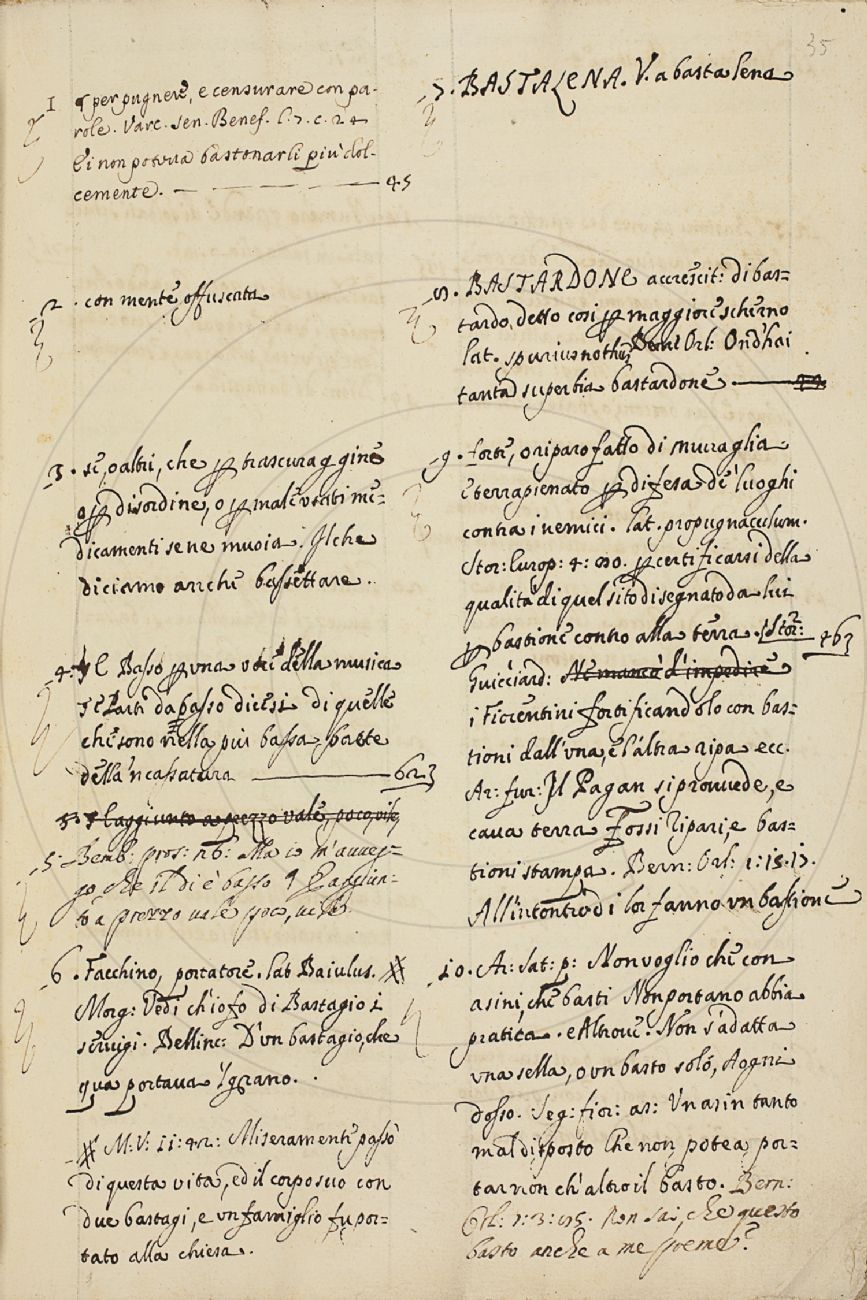 35
1 ¶ per pugnere, e censurare con pa-
role. Varc. Sen. Benef. l. 7. c. 24
E i non poteva bastonarli più dol-
cemente. — — — — 45
2. con mente offuscata
3. se, o altri, che per trascuraggine
o per disordine, o per male usati me=
dicamenti se ne muoia. Il che
diciamo anche bassettare.
4. Il Basso per una voce della musica
Parti da basso dicesi di quelle
che sono nella più bassa parte
della 'ncassatura ——— 623
5. L'aggiunto a prezzo vale poco, vile
5. Bemb: pros: Ma io m'avveg-
go, che il dì è basso ¶ L'aggiun-
to a prezzo vale poco, vile
6. Facchino, portatore. lat Baiulus. #
Morg: Vedi ch'io fo di Bastagio i
servigi. Bellinc: D'un bastagio, che
qua portava 'l grano.
# M: V: 11: 42: Miseramente passò
di questa vita, ed il corpo suo con
due bastagi, e un famiglio fu por=
tato alla chiesa.
7. BASTALENA. V. a basta lena
8. BASTARDONE accrescit: di bas=
tardo, detto così per maggiore scherno
lat. spurius nothus Bern: Orl: Ond'hai
tanta superbia bastardone. ———
9. forte, o riparo fatto di muraglia
e terrapienato per difesa de' luoghi
contra i nemici. lat. propugnaculum.
Stor: Europ: 4: per certificarsi della
qualità di quel sito disegnato da lui
per bastione contro alla terra. Stor: 463
Guicciard: Ne mancò d'impedire
i Fiorentini fortificandolo con bas=
tioni dall'una, e l'altra ripa ecc.
Ar: fur: Il Pagan si provvede, e
cava terra Fossi Ripari, e bas=
tioni stampa. Bern: Orl: 1: 15. 17.
All'incontro di lor fanno un bastione
10. Ar: Sat: p: Non voglio che con
asini, che basti Non portano abbia
pratica. e Altrove: Non s'adatta
una sella, o un basto solo, Ad ogni
dosso. Seg: fior: as: Un asin tanto
mal disposto Che non potea, por=
tar non ch'altro il basto. Bern:
Orl: Non sai, che questo
basto anche a me preme?